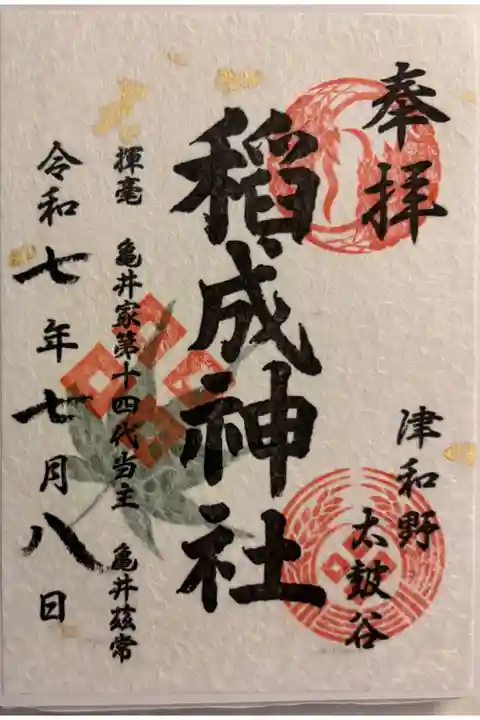 奉拝
津和野
太皷谷
稲成神社
揮毫 亀井家第十四代当主 亀井玆常
令和七年七月八日